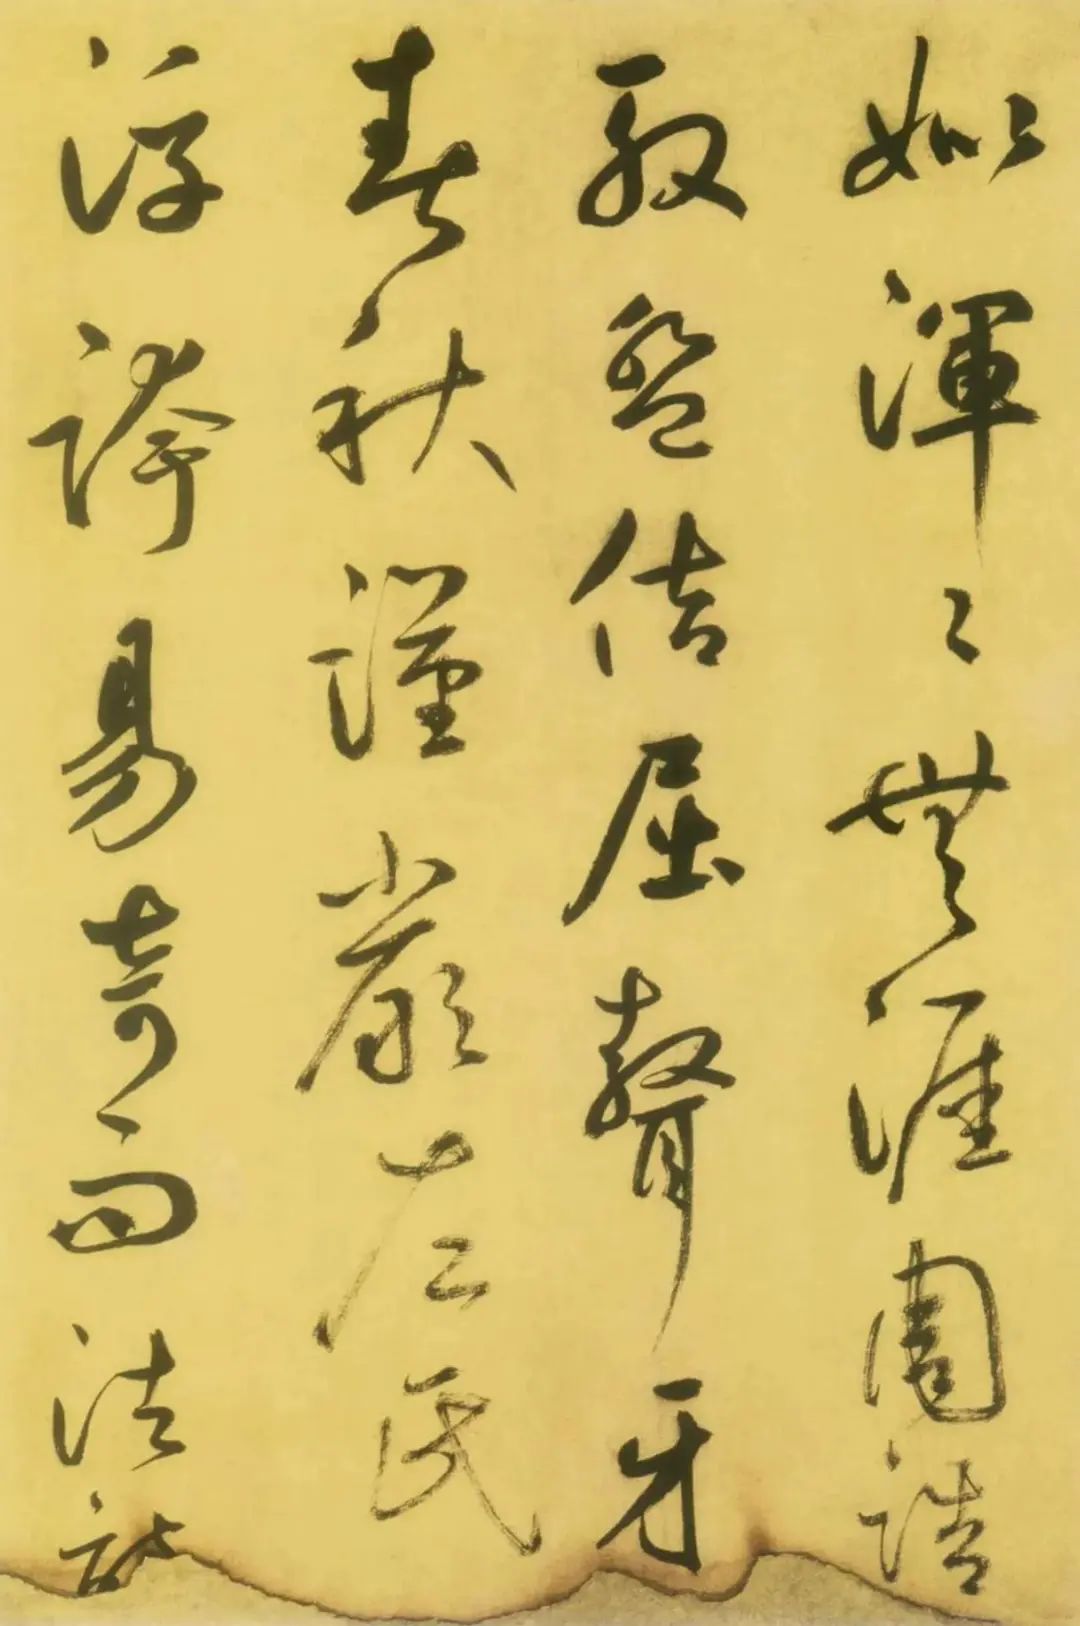 姒渾〻無涯周誥
殷盤佶屈聱牙
春秋謹嚴左氏
浮誇易奇而法詩